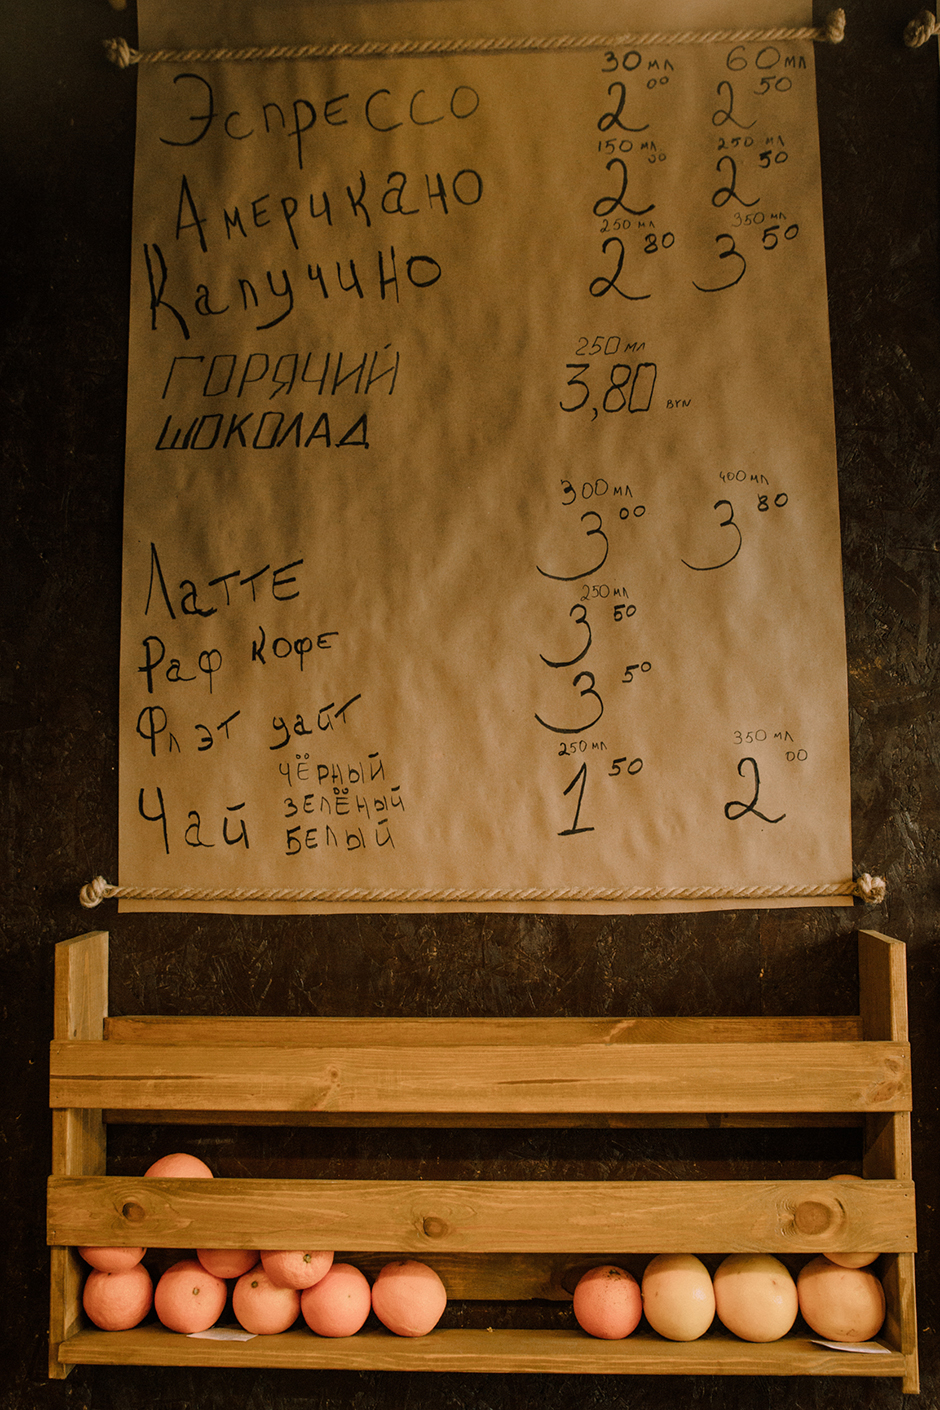 30 мл 60 мл
Эспрессо 2 00 2 50
150 мл 250 мл
Американо 2 00 2 50
250 мл 350 мл
Капучино 2 80 3 50
250 мл
ГОРЯЧИЙ 3,80 BYN
ШОКОЛАД
300 мл 400 мл
Латте 3 00 3 80
250 мл
Раф кофе 3 50
Флэт уайт 3 50
250 мл 350 мл
Чай 1 50 2 00
ЧЁРНЫЙ
ЗЕЛЁНЫЙ
БЕЛЫЙ